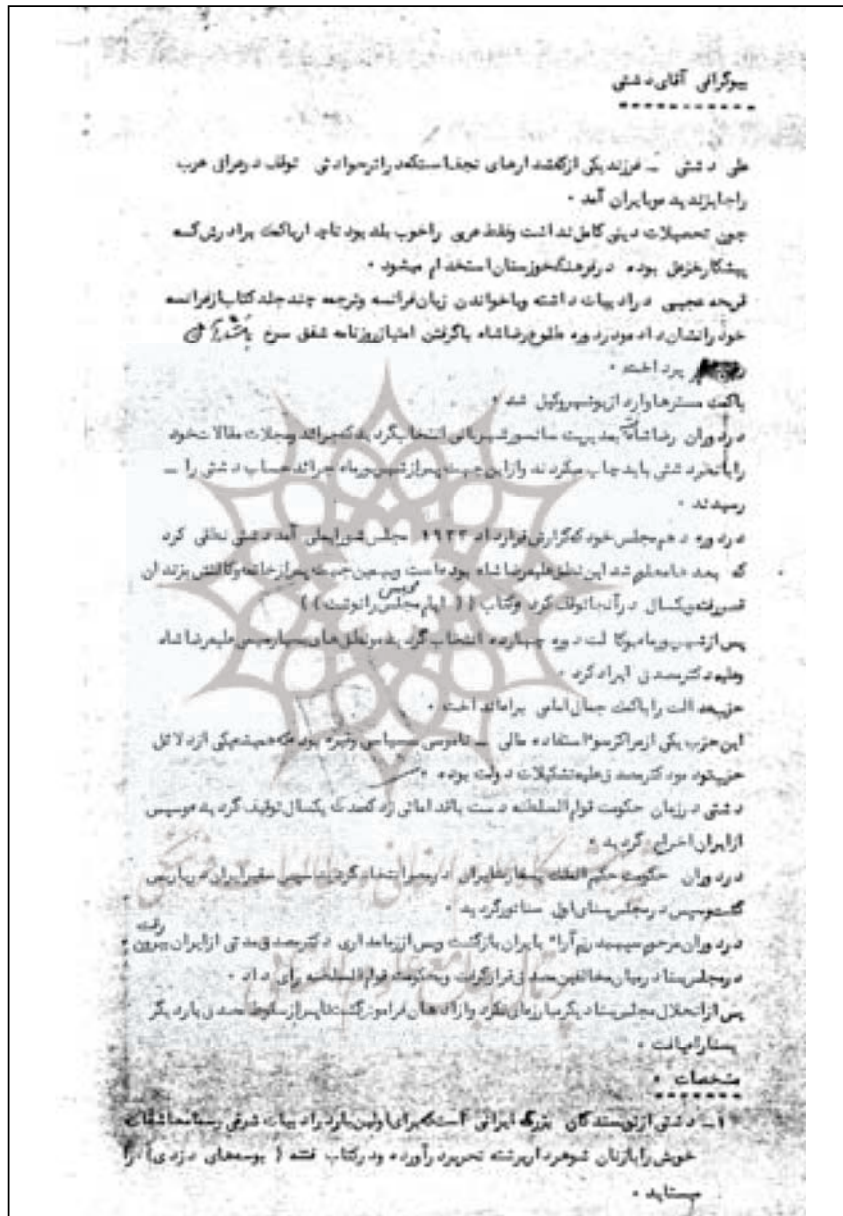 بیوگرافی آقای دشتی
علی دشتی ـ فرزند یکی از کفشدارهای نجف است که در اثر حوادثی توقف در عراق عرب
را جایز ندیده و بایران آمد .
چون تحصیلات دینی کامل نداشت و فقط عربی را خوب بلد بود ناچار با کمک برادرش که
پیشکار خزعل بوده در فرهنگ خوزستان استخدام میشود .
قریحه عجیبی در ادبیات داشته و با خواندن زبان فرانسه و ترجمه چند جلد کتاب از فرانسه
خود را نشان داد و در دوره طلوع رضا شاه با گرفتن امتیاز روزنامه شفق سرخ
پرداخت .
با کمک مسترها وارد از بوشهر وکیل شد .
در دوران رضا شاه بمدیریت سانسور شهربانی انتخاب گردید که جرائد و مجلات مقالات خود
را با نظر دشتی باید چاپ میکردند و از این جهت پس از شهریور ماه جرائد حساب دشتی را ـ
رسیدند .
در دوره دهم مجلس خود که گزارش قرارداد ۱۹۳۳ مجلس شورایملی آمد دشتی نطقی کرد
که بعدها معلوم شد این نطق علیه رضا شاه بوده است و بهمین جهت پس از خاتمه وکالتش بزندان
قصر رفته و یکسال در آنجا توقف کرد و کتاب (( ایام محبس را نوشت ))
پس از شهریور ماه بوکالت دوره چهارده انتخاب گردیده و نطق های بسیار مهیبی علیه رضا شاه
و علیه دکتر مصدق ایراد کرد .
حزب عدالت را با کمک جمال امامی براه انداخت .
این حزب یکی از مراکز سوء استفاده مالی ـ ناموسی ـ سیاسی و غیره بود که همیشه یکی از دلائل
حزب توده و دکتر مصدق علیه تشکیلات دولت بوده .
دشتی در زمان حکومت قوام السلطنه دست باقداماتی زد که مدت یکسال توقیف گردیده و سپس
از ایران اخراج گردید .
در دوران حکومت حکیم الملک بسفارت ایران در مصر انتخاب گردید و سپس سفیر ایران در پاریس
گشت و سپس در مجلس سنای اول سناتور گردید .
در دوران مرحوم سپهبد رزم آراء بایران بازگشت و پس از زمامداری دکتر مصدق مدتی از ایران بیرون رفت
در مجلس سنا در میان مخالفین مصدق قرار گرفت و بحکومت قوام السلطنه رأی داد .
پس از انحلال مجلس سنا دیگر مبارزه ای نکرد و از اذهان فراموش گشت تا پس از سقوط مصدق بار دیگر
بسنا راه یافت .
مشخصات .
۱ـ دشتی از نویسندگان بزرگ ایرانی است که برای اولین بار در ادبیات شرقی رسما معاشقات
خویش را با زنان شوهردار برشته تحریر درآورده و در کتاب فتنه ( بوسه های دزدی ) را
میستاید .